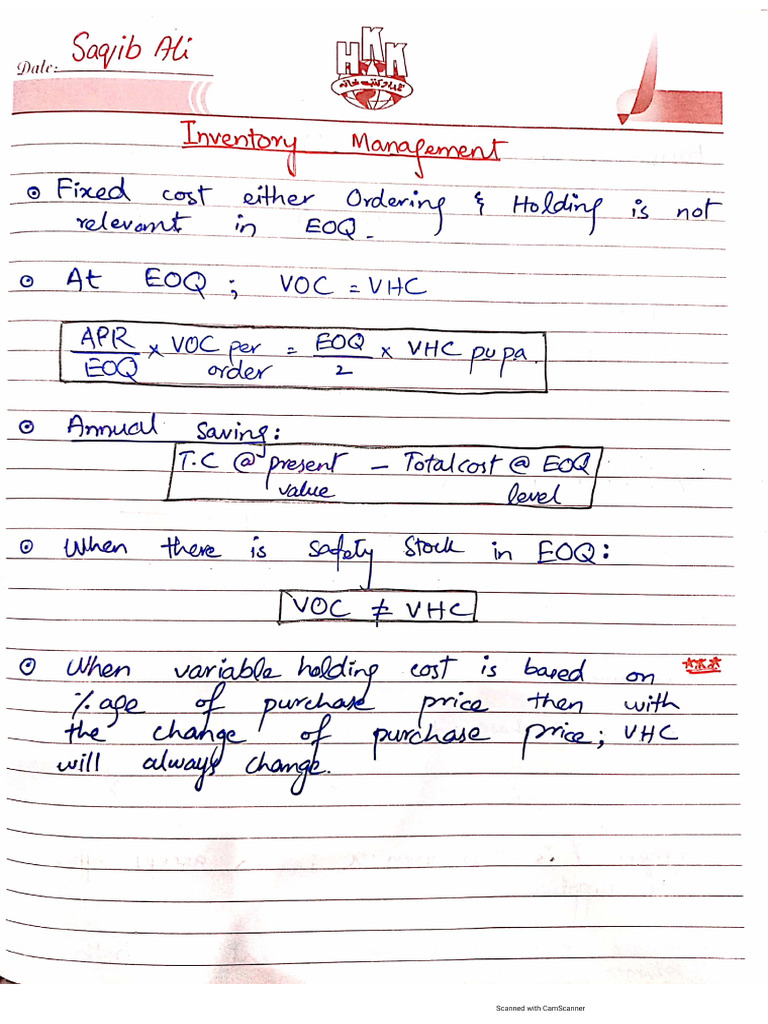 Saqib Ali
Date:
HKK
Inventory Management
Fixed cost either Ordering & Holding is not
relevant in EOQ.
At EOQ; VOC = VHC
APR/EOQ × VOC per order = EOQ/2 × VHC pupa.
Annual Saving:
T.C @ present value – Total cost @ EOQ level
When there is safety stock in EOQ:
VOC ≠ VHC
When variable holding cost is based on ***
%age of purchase price then with
the change of purchase price; VHC
will always change.
Scanned with CamScanner